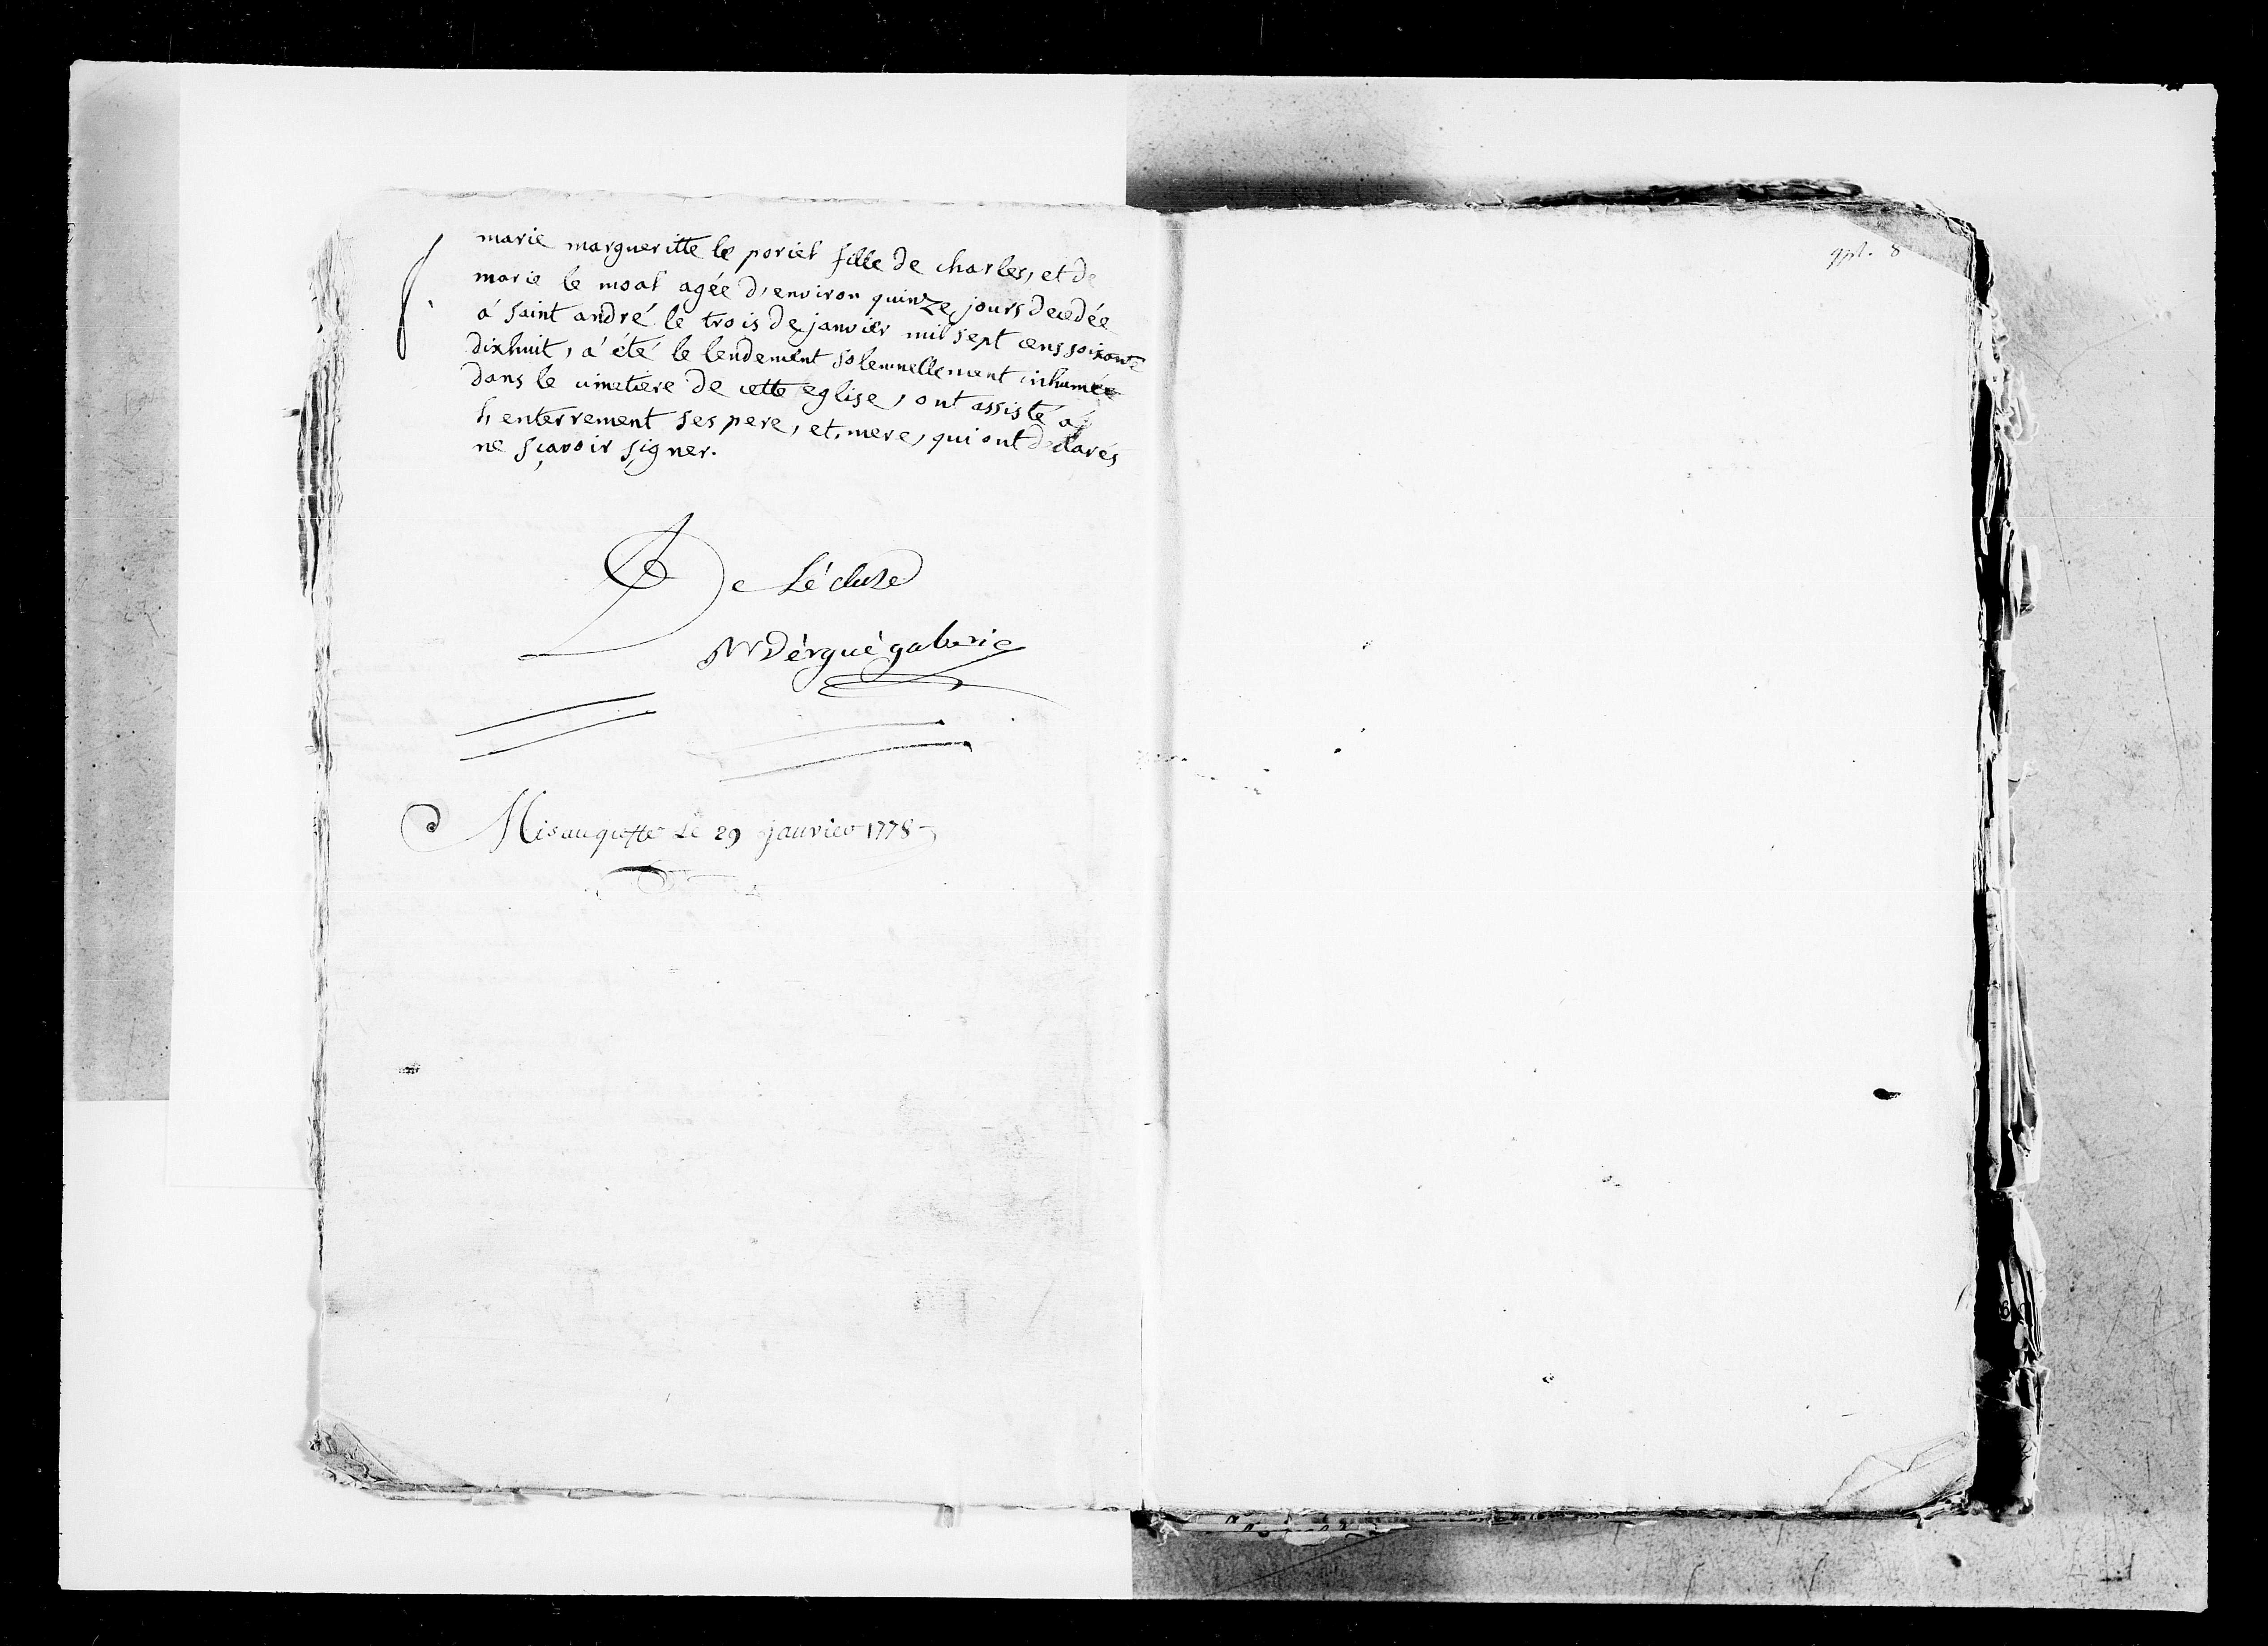 marie margueritte le poriel fille de charles, et de
marie le moal agée d'environ quinze jours decedée
á saint andré le trois de janvier mil sept cens soixante
dixhuit, a été le lendement solemnellement inhumée
dans le cimetiere de cette eglise, ont assisté á
l'enterrement ses pere, et, mere, qui ont declarés
ne sçavoir signer.
De Lécluse
Vr dérgué gaberic
Mis au greffe Le 29 janvier 1778